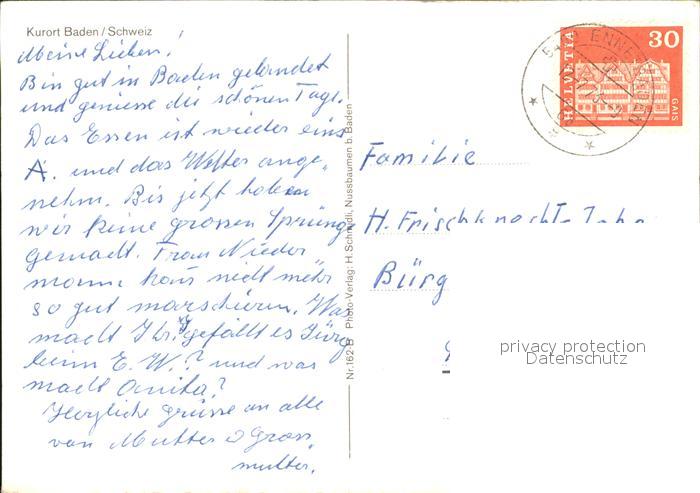 Kurort Baden / Schweiz
Meine Lieben!
Bin gut in Baden gelandet
und geniesse die schönen Tage.
Das Essen ist wieder eins
A. und das Wetter ange-
nehm. Bis jetzt haben
wir keine grossen Sprünge
gemacht. Frau Nieder-
mann kann nicht mehr
so gut marschieren. Was
macht Ihr? gefällt es Jürg
beim E. W.? und was
macht Anita?
Herzliche grüsse an alle
von Mutter u Gross
mutter.
Nr. 162 B Photo-Verlag: H. Schmidli, Nussbaumen b. Baden
HELVETIA
30
GAIS
Familie
H. Frischknecht-
Bürg
privacy protection
Datenschutz